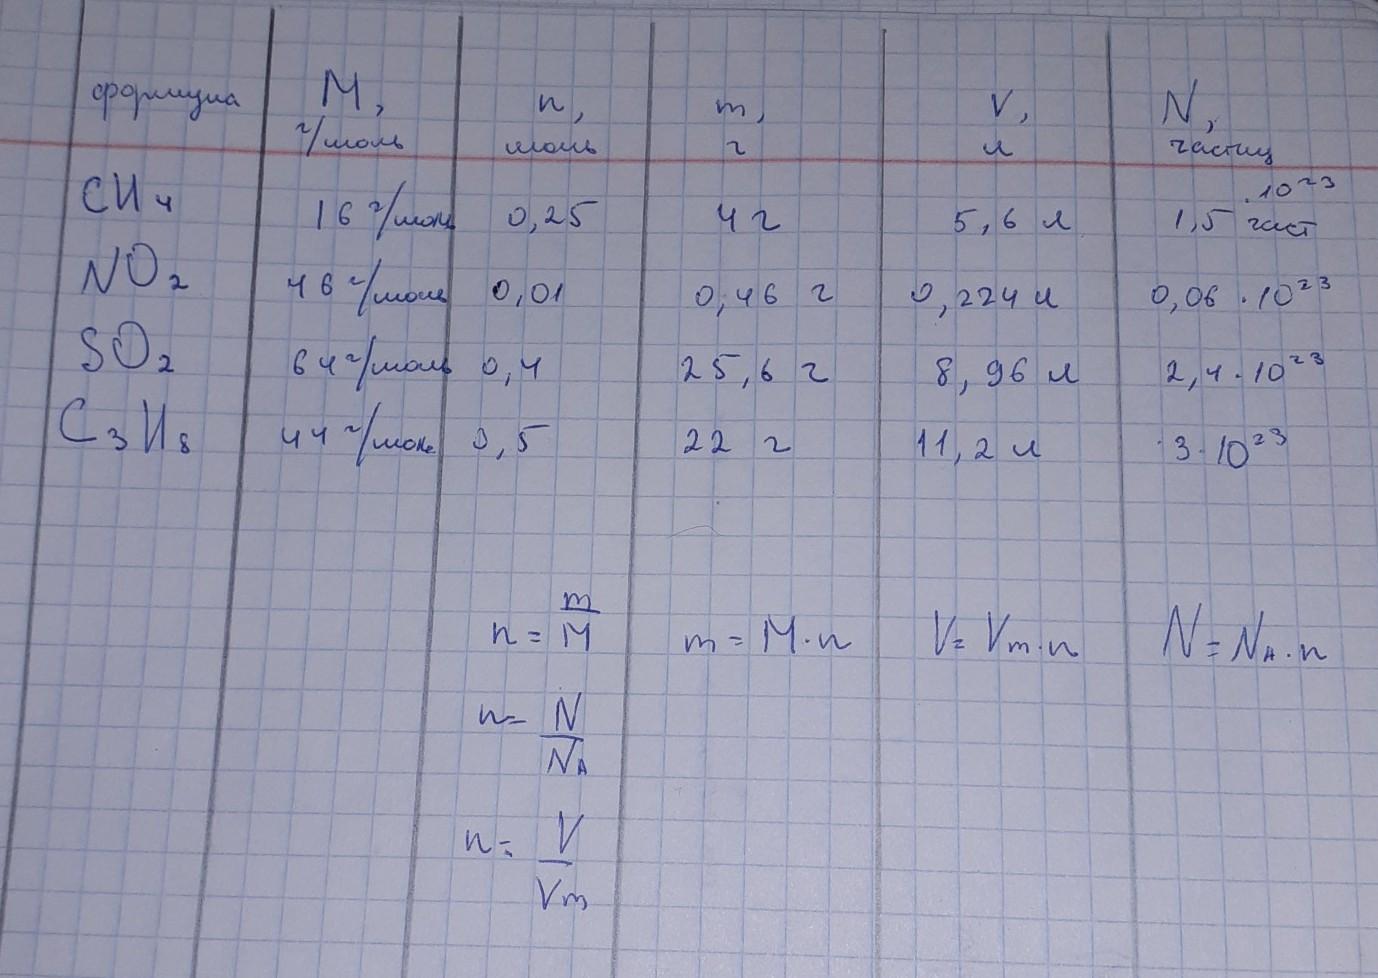 формула M, n, m, V, N,
г/моль моль г л частиц
CH₄ 16 г/моль 0,25 4 г 5,6 л 1,5 · 10²³ част
NO₂ 46 г/моль 0,01 0,46 г 0,224 л 0,06 · 10²³
SO₂ 64 г/моль 0,4 25,6 г 8,96 л 2,4 · 10²³
C₃H₈ 44 г/моль 0,5 22 г 11,2 л 3 · 10²³
n = m/M m = M · n V = Vm · n N = N_A · n
n = N/N_A
n = V/Vm